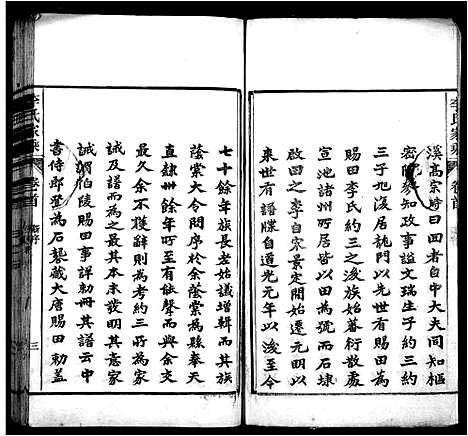 李氏家乘 卷首
溪高宗時曰回者自中大夫同知樞
密院參知政事謚文瑞生子約三約
三子九浚居龍門以回嘗
賜田李氏約三之浚族始蕃衍散處
宣池諸州所居皆以田為號而石埭
啟田之李自宋景定間始遷元明以
來世有譜牒自道光元年以浚至今
七十餘年族長老始議增輯而其族
蔭棠大令問序於余蔭棠為縣奉天
直隸卅餘年所至有能聲而與余交
最久余不獲辭則為考約三所為家
誡及譜而為之最其本末發明其意家
誡謂伯陵賜田事詳勅冊其譜云中
書侍郎雅為石甃藏大唐賜田勅蓋
李氏家乘 卷首 新序 三